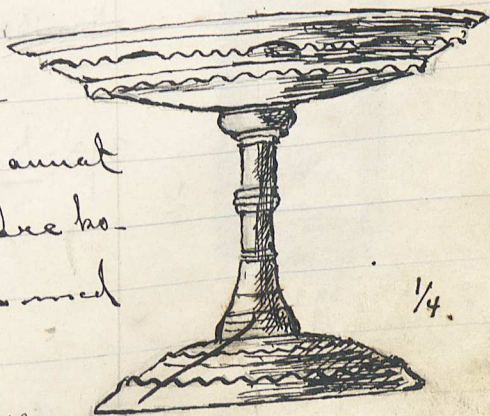 annat
dre ko-
med
1/4.